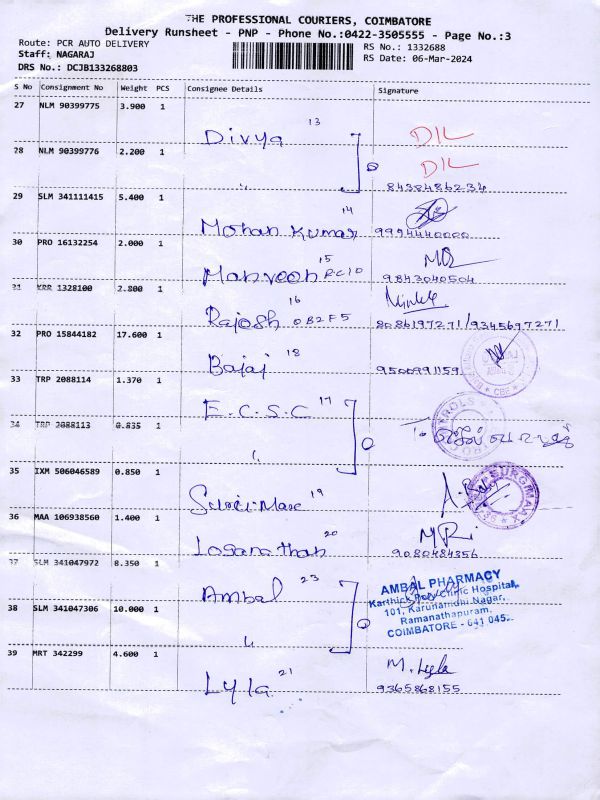 THE PROFESSIONAL COURIERS, COIMBATORE
Delivery Runsheet - PNP - Phone No.:0422-3505555 - Page No.:3
Route: PCR AUTO DELIVERY
RS No.: 1332688
Staff: NAGARAJ
RS Date: 06-Mar-2024
DRS No.: DCJB133268803
S No Consignment No Weight PCS Consignee Details Signature
27 NLM 90399775 3.900 1
Divya 13 DIL
28 NLM 90399776 2.200 1
DIL
" 8438486234
29 SLM 341111415 5.400 1
Mohan Kumar 14 9994440000
30 PRO 16132254 2.000 1
15 9843040504
31 KRR 1328100 2.800 1
Rajesh 16 OB2F5 8086197271/9345697271
32 PRO 15844182 17.600 1
Bajaj 18 9500991159
33 TRP 2088114 1.370 1
E.C.S.C 17
34 TRP 2088113 0.835 1
"
35 IXM 506046589 0.850 1
19
36 MAA 106938560 1.400 1
Loganathan 20 9080484356
37 SLM 341047972 8.350 1
Ambal 23
AMBAL PHARMACY
Karthick Poly Clinic Hospital,
101, Karunanidhi Nagar,
Ramanathapuram,
COIMBATORE - 641 045.
38 SLM 341047306 10.000 1
"
39 MRT 342299 4.600 1
Lyla 21 M. Lyla
9365868155